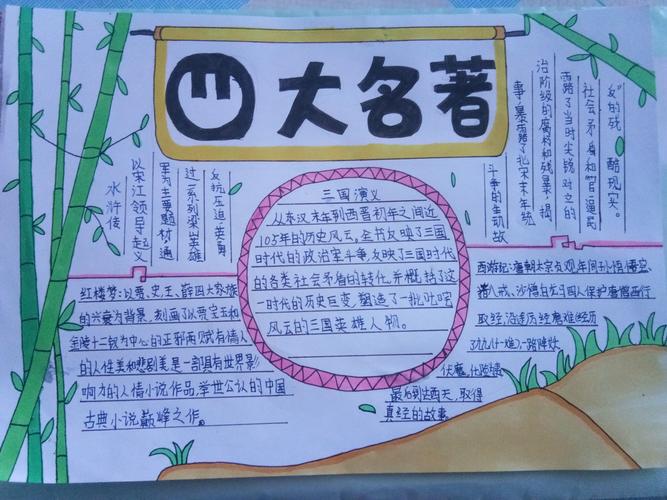 四大名著
水浒传
以宋江领导起义
军为主要题材,通
过一系列梁山英雄
反抗压迫、英勇
斗争的生动故
事,暴露了北宋末年统
治阶级的腐朽和残暴,揭
露了当时尖锐对立的
社会矛盾和官逼民
反"的残酷现实。
三国演义
从东汉末年到西晋初年之间近
105年的历史风云,全书反映了三国
时代的政治军斗争反映了三国时代
的各类社会矛盾的转化,并概括了这
一时代的历史巨变,塑造了一批叱咤
风云的三国英雄人物。
红楼梦:以贾、史、王、薛四大家族
的兴衰为背景,刻画了以贾宝玉和
金陵十二钗为中心的正邪两赋有情人
的人性美和悲剧美是一部具有世界影
响力的人情小说作品,举世公认的中国
古典小说巅峰之作。
西游记:唐朝太宗贞观年间孙悟空、
猪八戒、沙僧白龙马四人保护唐僧西行
取经,沿途历经磨难(经历
了九九八十一难)一路降妖
伏魔,化险
最后到达西天,取得
真经的故事.